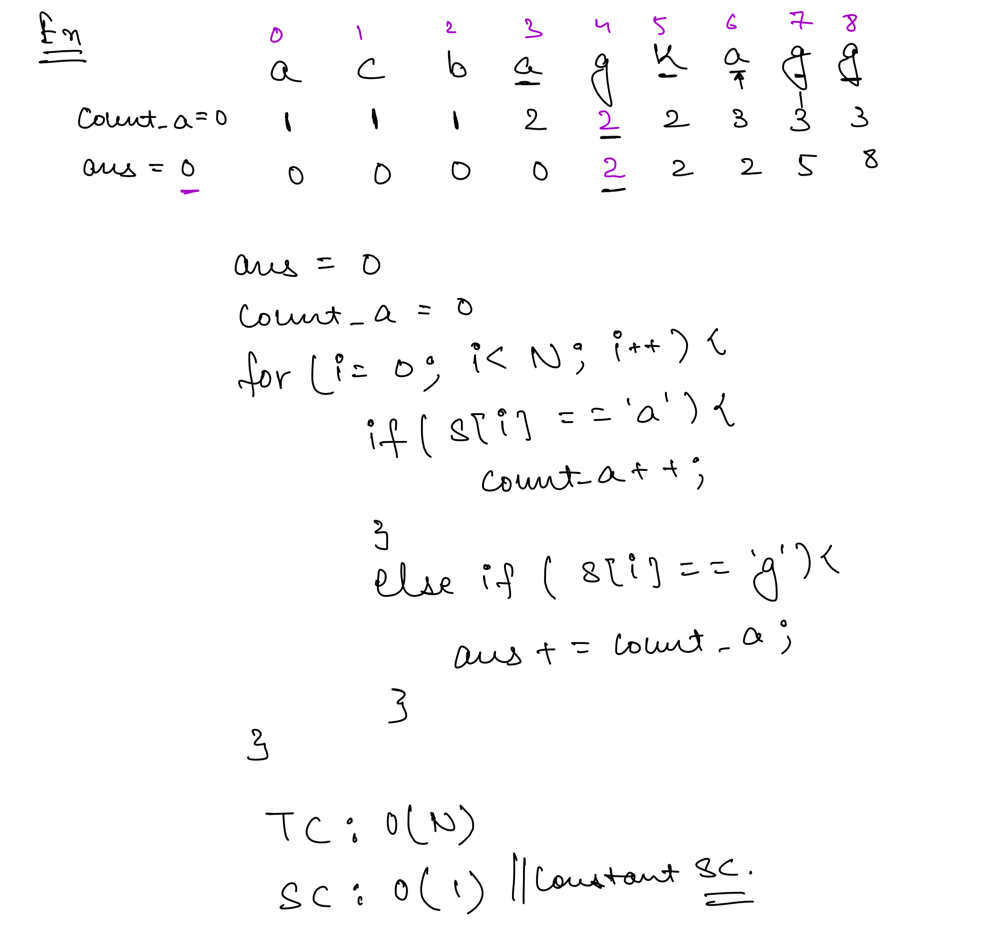 Ex 0 1 2 3 4 5 6 7 8
a c b a g k a g g
Count_a=0 1 1 1 2 2 2 3 3 3
ans = 0 0 0 0 0 2 2 2 5 8
ans = 0
Count_a = 0
for (i= 0; i< N; i++) {
if( s[i] == 'a') {
count_a++;
}
else if ( s[i] == 'g') {
ans += count_a;
}
}
TC: O(N)
SC: O(1) //Constant SC.